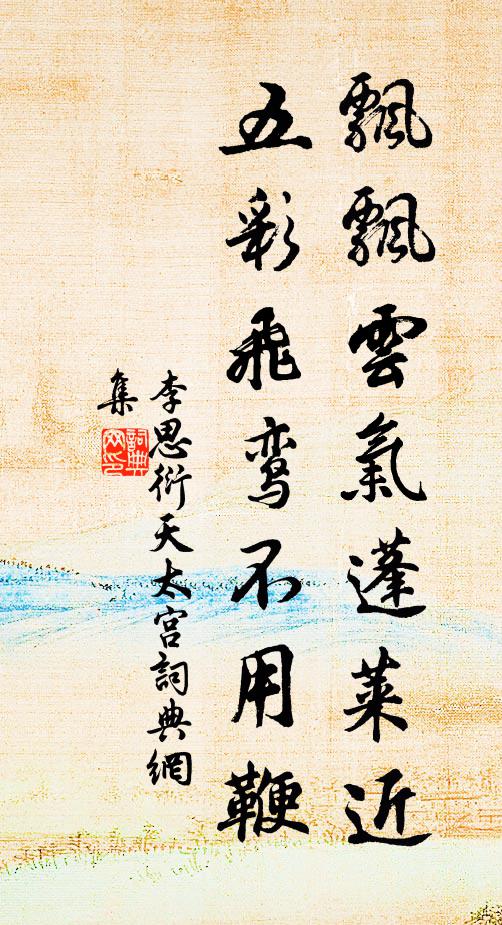 飄飄雲氣蓬萊近
五彩飛鸾不用鞭
李思衍天太宫詞典網
集
詞典網印